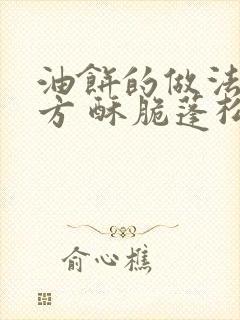 油餅的做法
方 酥脆蓬松
俞心樵